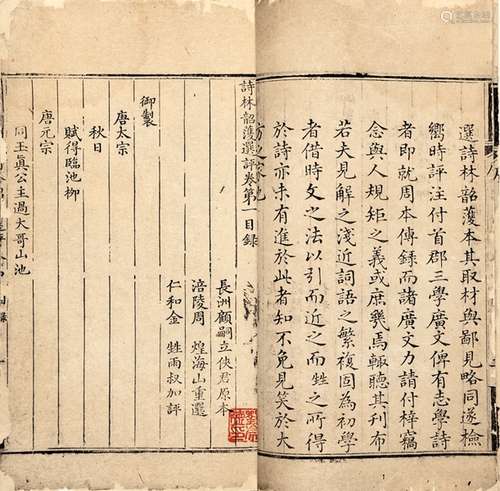 選詩林韶濩本其取材與鄙見略同遂檢
嚮時評注付首郡三學廣文俾有志學詩
者即就周本傳録而諸廣文力請付梓竊
念與人規矩之義或庶幾焉輙聽其刋布
若夫見解之淺近詞語之繁複固為初學
者借時文之法以引而近之而甡之所得
於詩亦未有進於此者知不免見笑於大
方之家也
詩林韶濩選評卷第一目録
長洲顧嗣立俠君原本
涪陵周 煌海山重選
仁和金 甡雨叔加評
御製
唐太宗
秋日
賦得臨池柳
唐元宗
同玉真公主過大哥山池